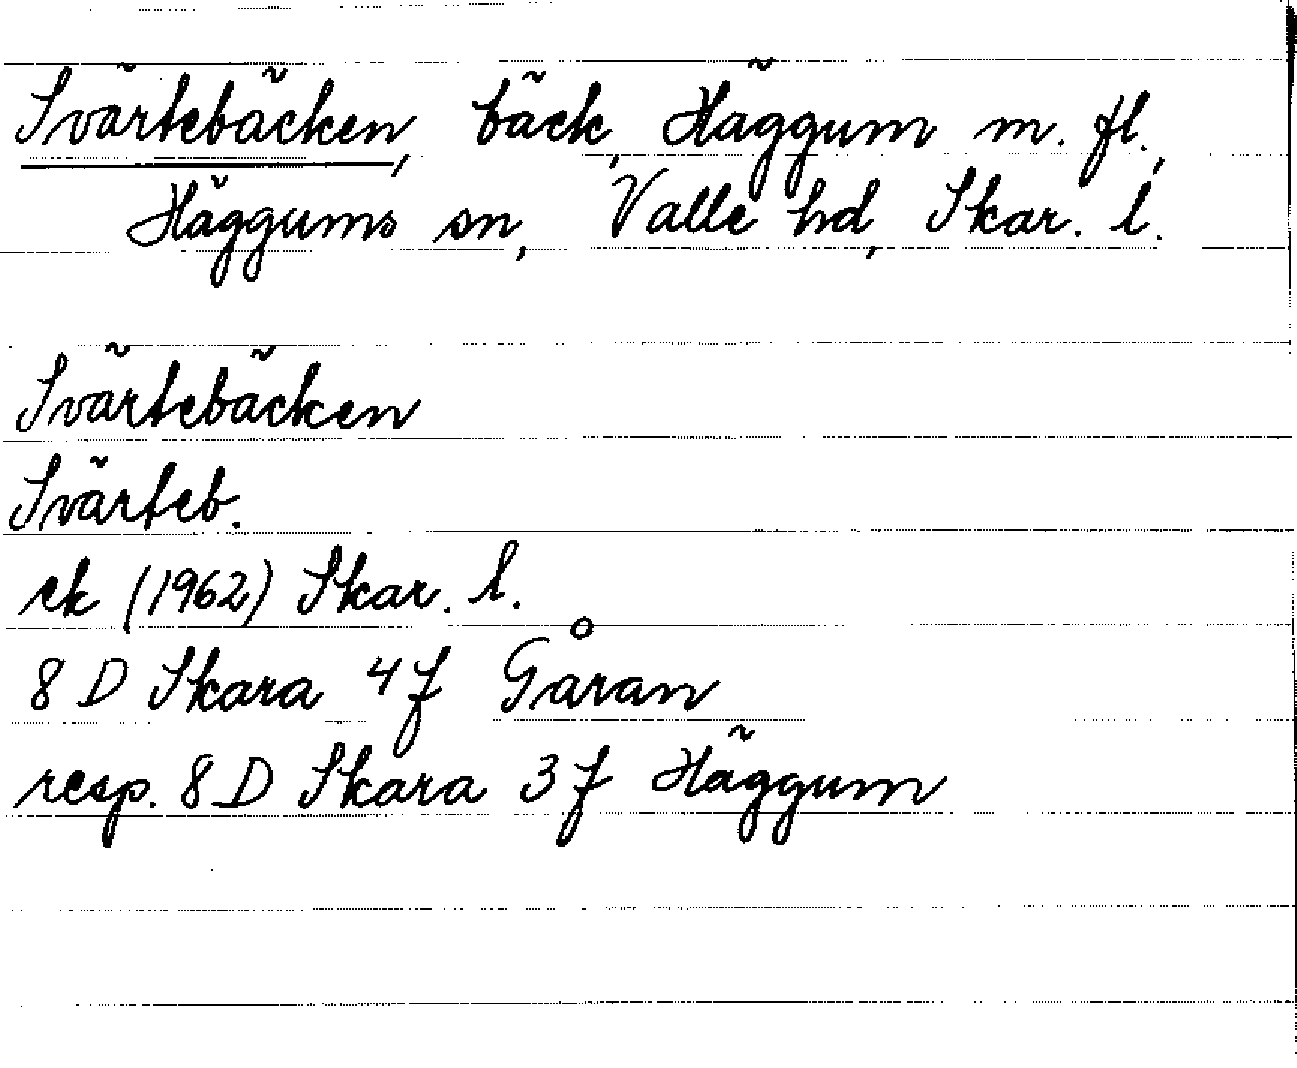 Svärtebäcken, bäck, Häggum m. fl.,
Häggums sn, Valle hd, Skar. l.
Svärtebäcken
Svärteb.
ek (1962) Skar. l.
8 D Skara 4 f Gåran
resp. 8 D Skara 3 f Häggum